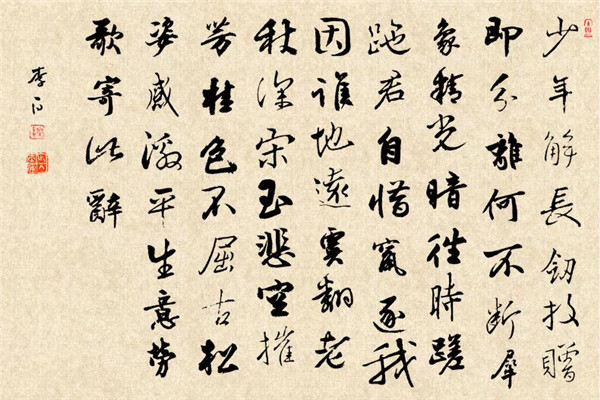 少年解長劍投贈
即分離何不斷犀
象精光暗往時蹉
跎君自惜竄逐我
因誰地遠虞翻老
秋深宋玉悲空摧
芳桂色不屈古松
姿感激平生意勞
歌寄此辭
李白